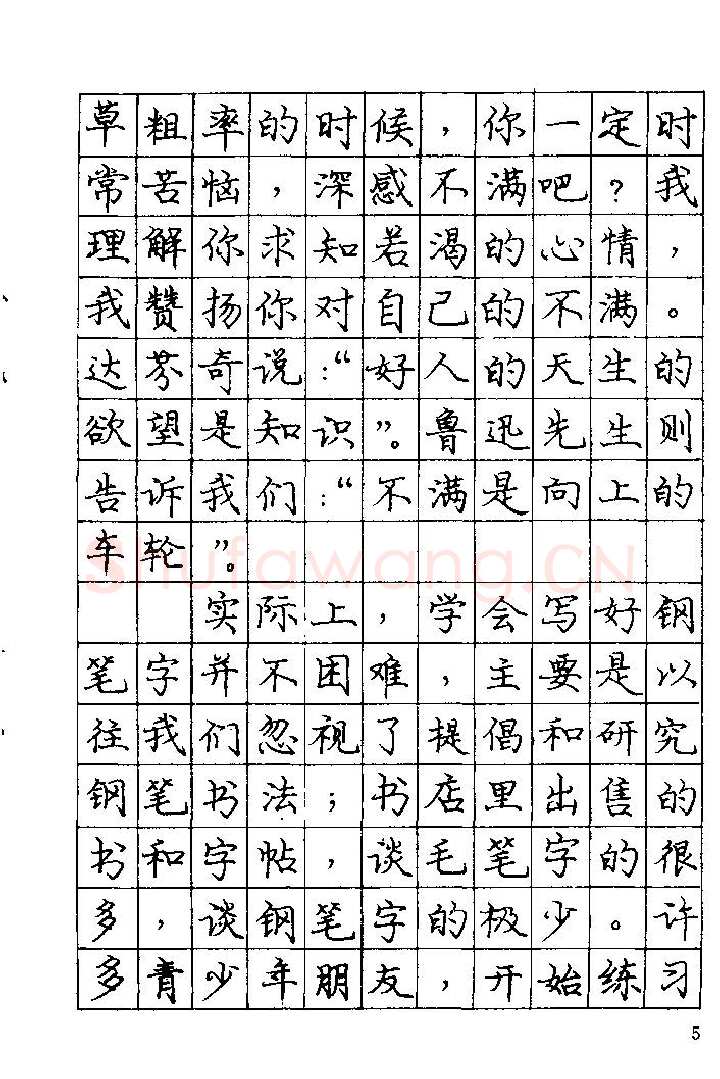 草粗率的时候，你一定时
常苦恼，深感不满吧？我
理解你求知若渴的心情，
我赞扬你对自己的不满。
达芬奇说：“好人的天生的
欲望是知识”。鲁迅先生则
告诉我们：“不满是向上的
车轮”。
Shufawang.CN
实际上，学会写好钢
笔字并不困难，主要是以
往我们忽视了提倡和研究
钢笔书法；书店里出售的
书和字帖，谈毛笔字的很
多，谈钢笔字的极少。许
多青少年朋友，开始练习
5